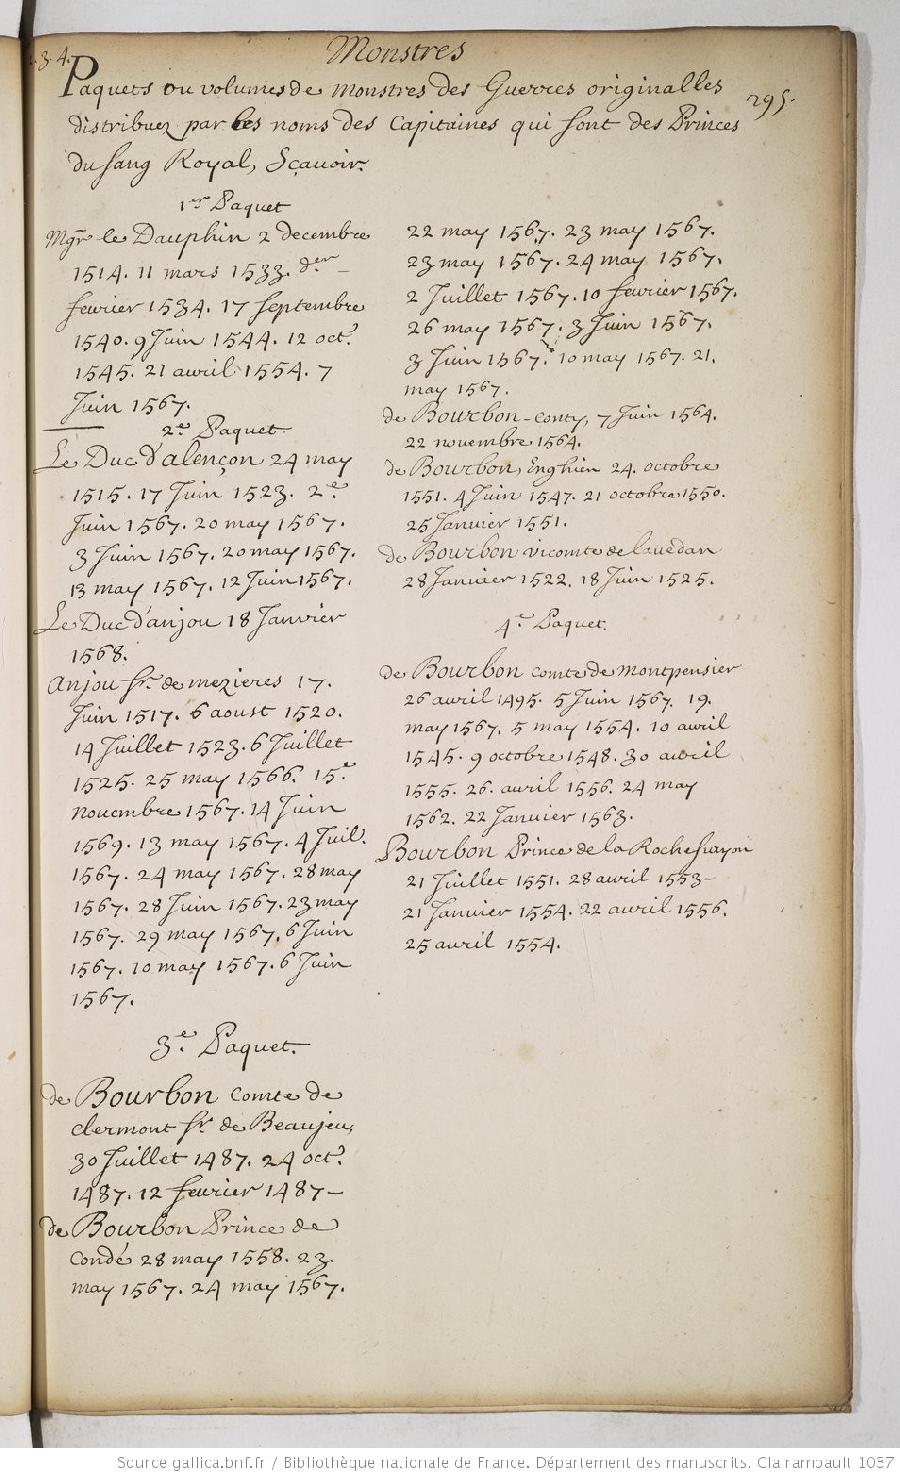 Monstres
1.3.4.
Paquets ou volumes de monstres des Guerres originalles
295.
distribuez par les noms des Capitaines qui sont des Princes
du sang Royal, Sçavoir.
1er Paquet
Mgr le Dauphin 2 decembre
1514. 11 mars 1533. der
fevrier 1534. 17 septembre
1540. 9 Juin 1544. 12 oct.
1545. 21 avril 1554. 7
Juin 1567.
2e Paquet
Le Duc d'alençon 24 may
1515. 17 Juin 1523. 2e
Juin 1567. 20 may 1567.
3 Juin 1567. 20 may 1567.
13 may 1567. 12 Juin 1567.
Le Duc d'anjou 18 Janvier
1568.
Anjou sr. de mezieres 17.
Juin 1517. 6 aoust 1520.
14 Juillet 1523. 6 Juillet
1525. 25 may 1566. 15e
novembre 1567. 14 Juin
1569. 13 may 1567. 4 Juil.
1567. 24 may 1567. 28 may
1567. 28 Juin 1567. 23 may
1567. 29 may 1567. 6 Juin
1567. 10 may 1567. 6 Juin
1567.
3e. Paquet.
de Bourbon comte de
clermont sr. de Beaujeu,
30 Juillet 1487. 24 oct.
1487. 12 fevrier 1487-
de Bourbon Prince de
Condé 28 may 1558. 23
may 1567. 24 may 1567.
22 may 1567. 23 may 1567.
23 may 1567. 24 may 1567.
2 Juillet 1567. 10 fevrier 1567.
26 may 1567. 3 Juin 1567.
3 Juin 1567. 10 may 1567. 21.
may 1567.
de Bourbon-conty, 7 Juin 1564.
22 novembre 1564.
de Bourbon, Enghien 24. octobre
1551. 4 Juin 1547. 21 octobre 1550.
25 Janvier 1551.
de Bourbon vicomte de lavedan
28 Janvier 1522. 18 Juin 1525.
4e Paquet.
de Bourbon comte de montpensier
26 avril 1495. 5 Juin 1567. 19.
may 1567. 5 may 1554. 10 avril
1545. 9 octobre 1548. 30 avril
1555. 26. avril 1556. 24 may
1562. 22 Janvier 1563.
Bourbon Prince de la Rochesuryon
21 Juillet 1551. 28 avril 1553-
21 Janvier 1554. 22 avril 1556.
25 avril 1554.
Source gallica.bnf.fr / Bibliothèque nationale de France. Département des manuscrits. Clairambault 1037